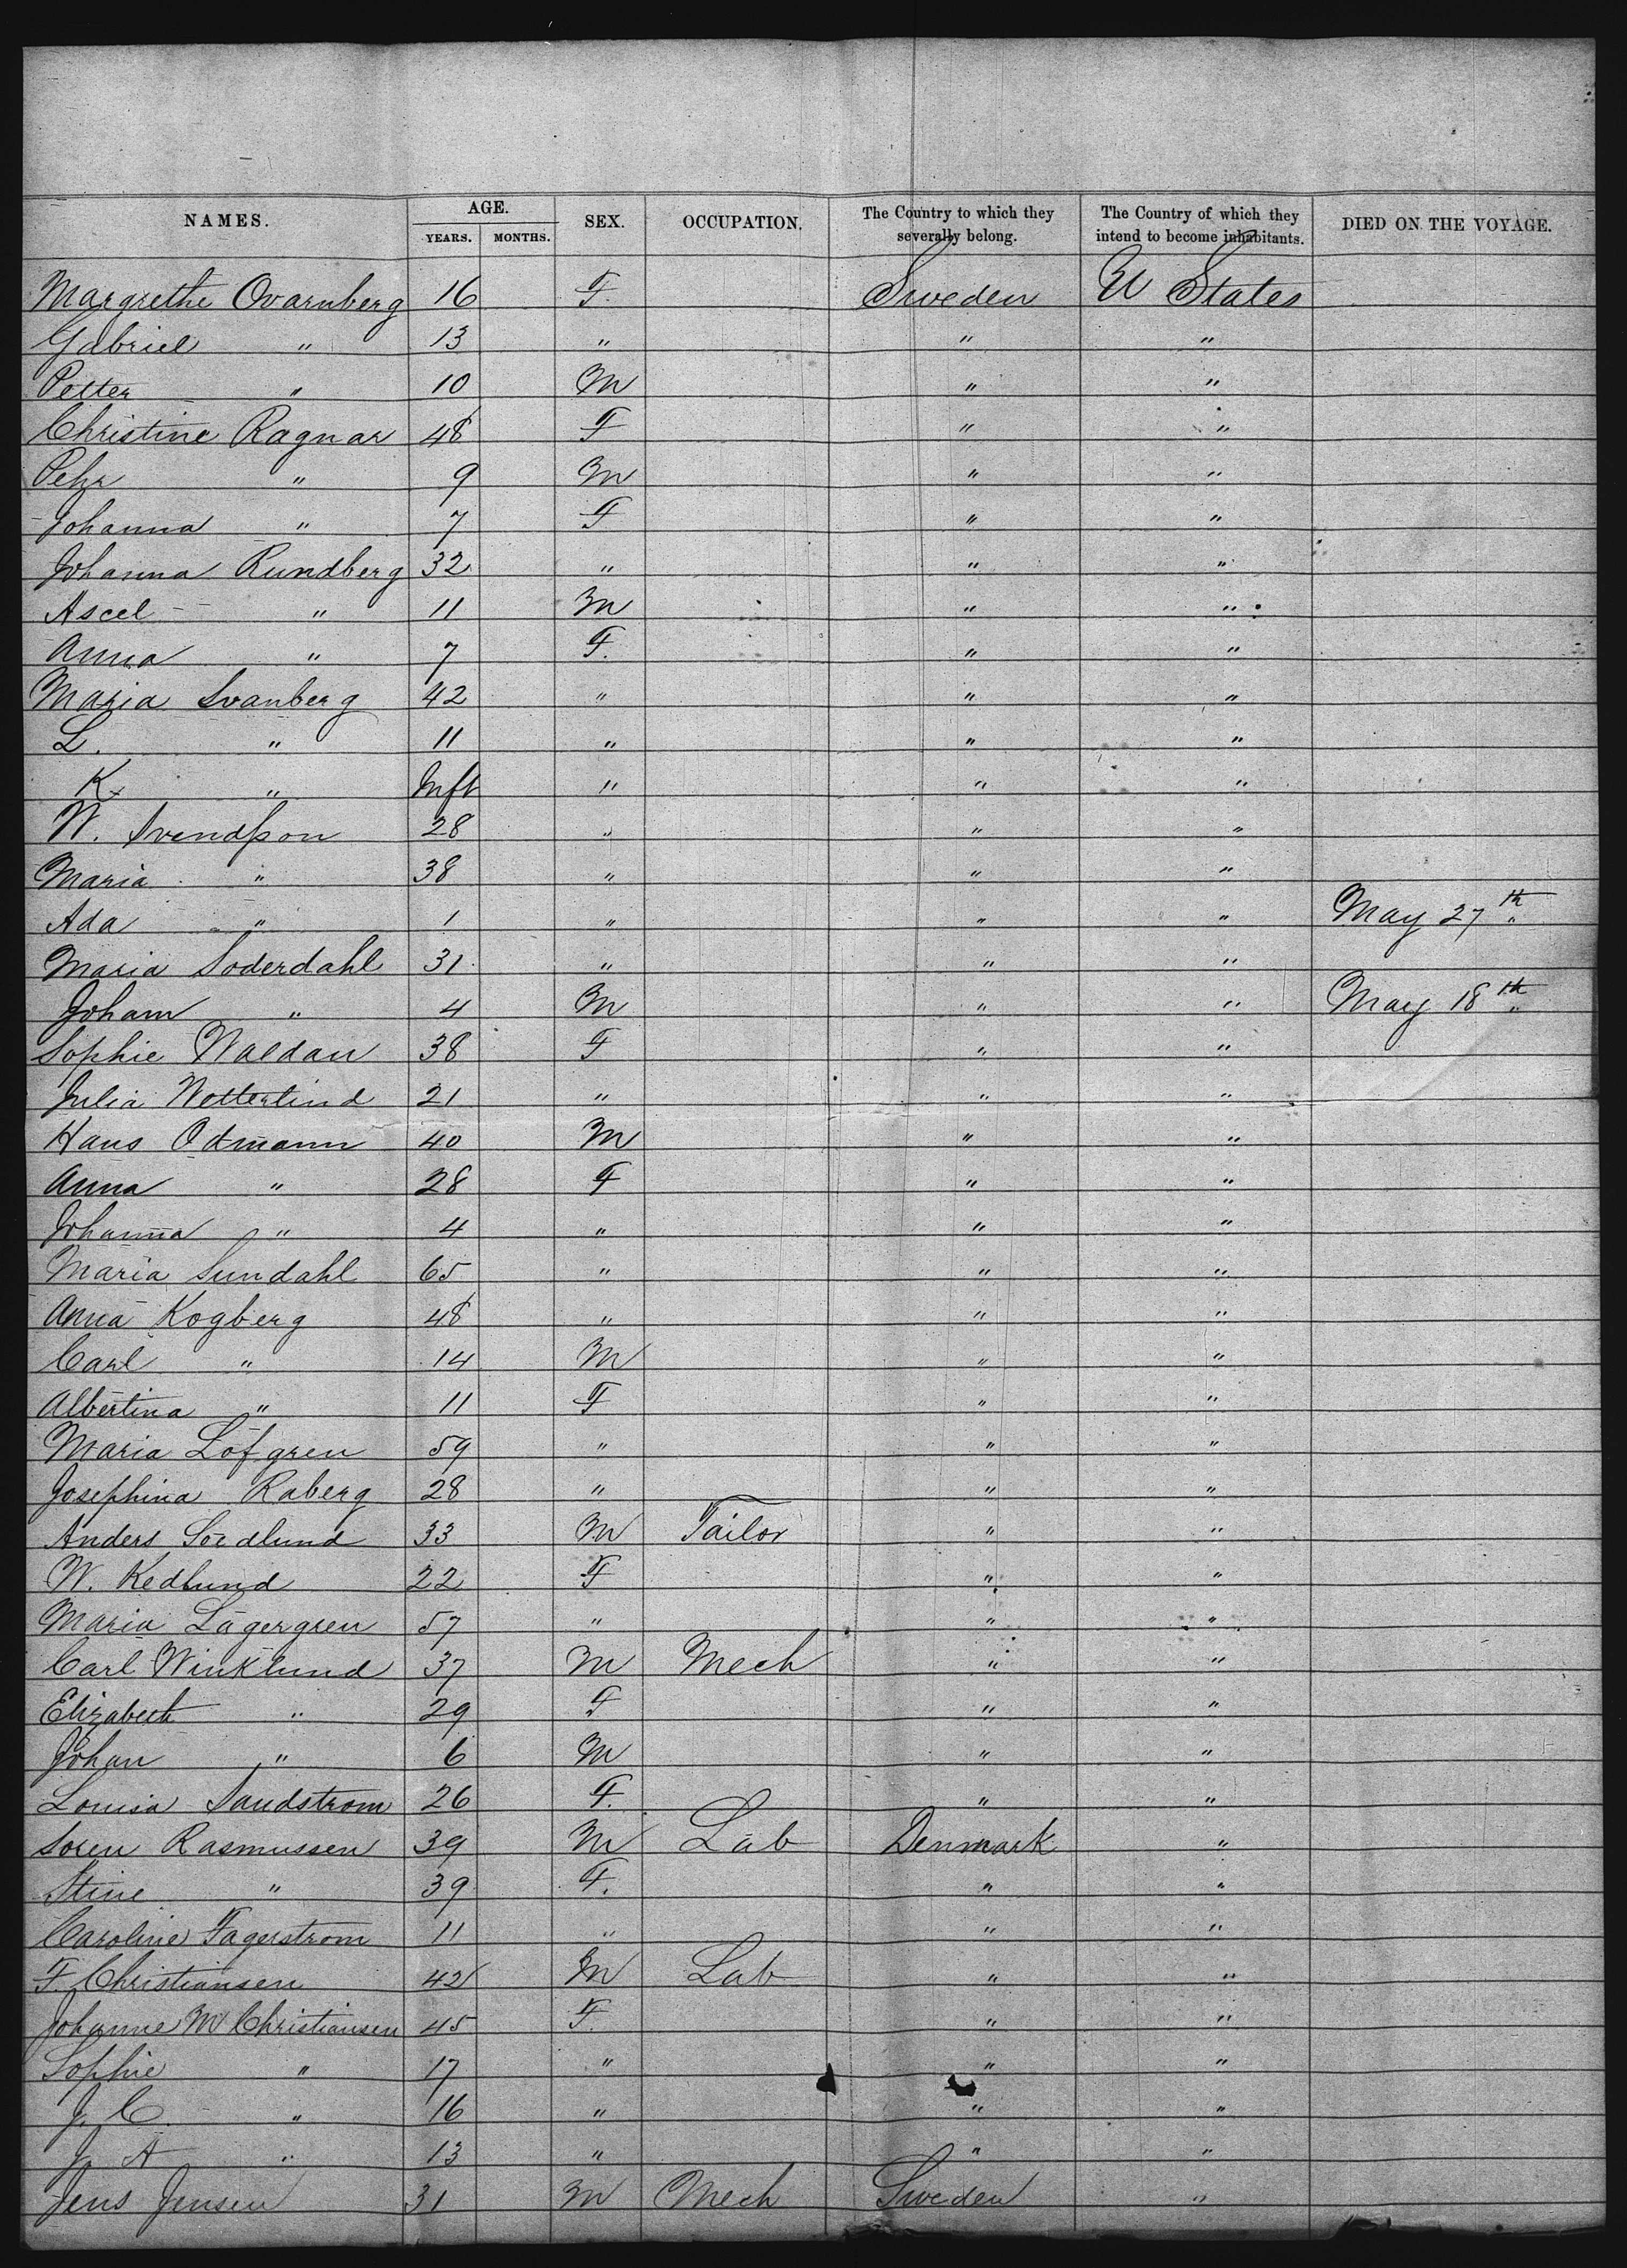 NAMES. AGE. SEX. OCCUPATION. The Country to which they severally belong. The Country of which they intend to become inhabitants. DIED ON THE VOYAGE.
YEARS. MONTHS.
Margrethe Qvarnberg 16 F. Sweden U States
Gabriel " 13 " " "
Petter " 10 M " "
Christine Ragnar 48 F " "
Pehr " 9 M " "
Johanna " 7 F " "
Johanna Rundberg 32 " " "
Ascel " 11 M " "
Anna " 7 F. " "
Maria Svanberg 42 " " "
L. " 11 " " "
K. " Inft " " "
W. Svendsson 28 " " "
Maria " 38 " " "
Ada " 1 " " " May 27th
Maria Soderdahl 31 " " "
Joham " 4 M " " May 18th
Sophie Waldau 38 F " "
Julia Wetterlind 21 " " "
Hans Odmann 40 M " "
Anna " 28 F " "
Johanna " 4 " " "
Maria Sundahl 65 " " "
Anna Kogberg 48 " " "
Carl " 14 M " "
Albertina " 11 F " "
Maria Löfgren 59 " " "
Josephina Raberg 28 " " "
Anders Soedlund 33 M Tailor " "
W. Kedlund 22 F " "
Maria Lagergren 57 " " "
Carl Winklund 37 M Mech " "
Elizabeth " 29 F " "
Johan " 6 M " "
Louisa Sandstrom 26 F. " "
Soren Rasmussen 39 M Lab Denmark "
Stine " 39 F. " "
Caroline Fagerstrom 11 " " "
F. Christiansen 42 M Lab " "
Johanne M Christiansen 45 F. " "
Sophie " 17 " " "
J. C. " 16 " " "
J. A " 13 " " "
Jens Jensen 31 M Mech Sweden "